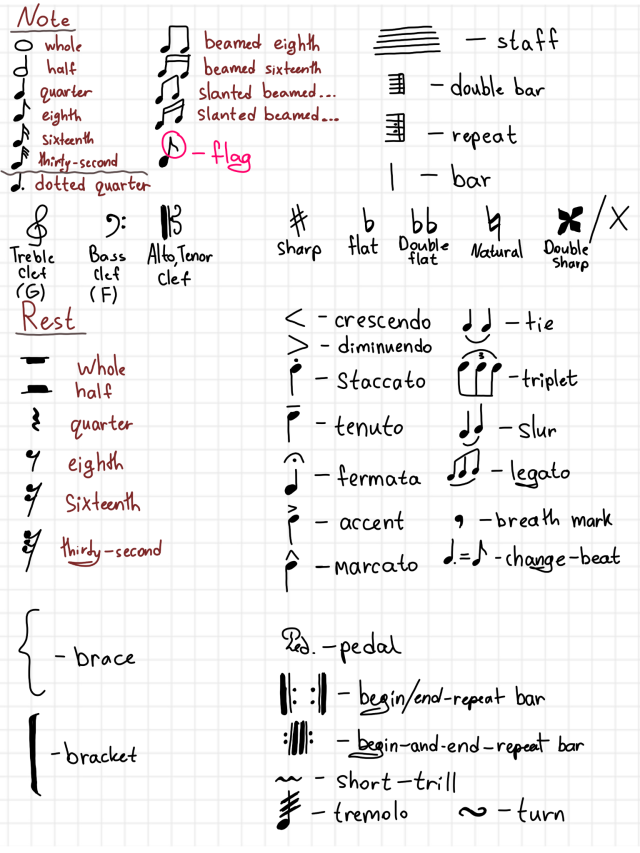 Note
whole
half
quarter
eighth
sixteenth
thirty-second
dotted quarter
beamed eighth
beamed sixteenth
slanted beamed...
slanted beamed...
- flag
- staff
- double bar
- repeat
- bar
Treble clef (G)
Bass clef (F)
Alto, Tenor clef
Sharp
flat
Double flat
Natural
Double sharp
/ X
Rest
Whole
half
quarter
eighth
Sixteenth
thirdy-second
< - crescendo
> - diminuendo
- Staccato
- tenuto
- fermata
- accent
- marcato
- tie
3
- triplet
- slur
- legato
- breath mark
- change-beat
- brace
- bracket
Ped. - pedal
- begin/end-repeat bar
- begin-and-end-repeat bar
- short-trill
- tremolo
- turn